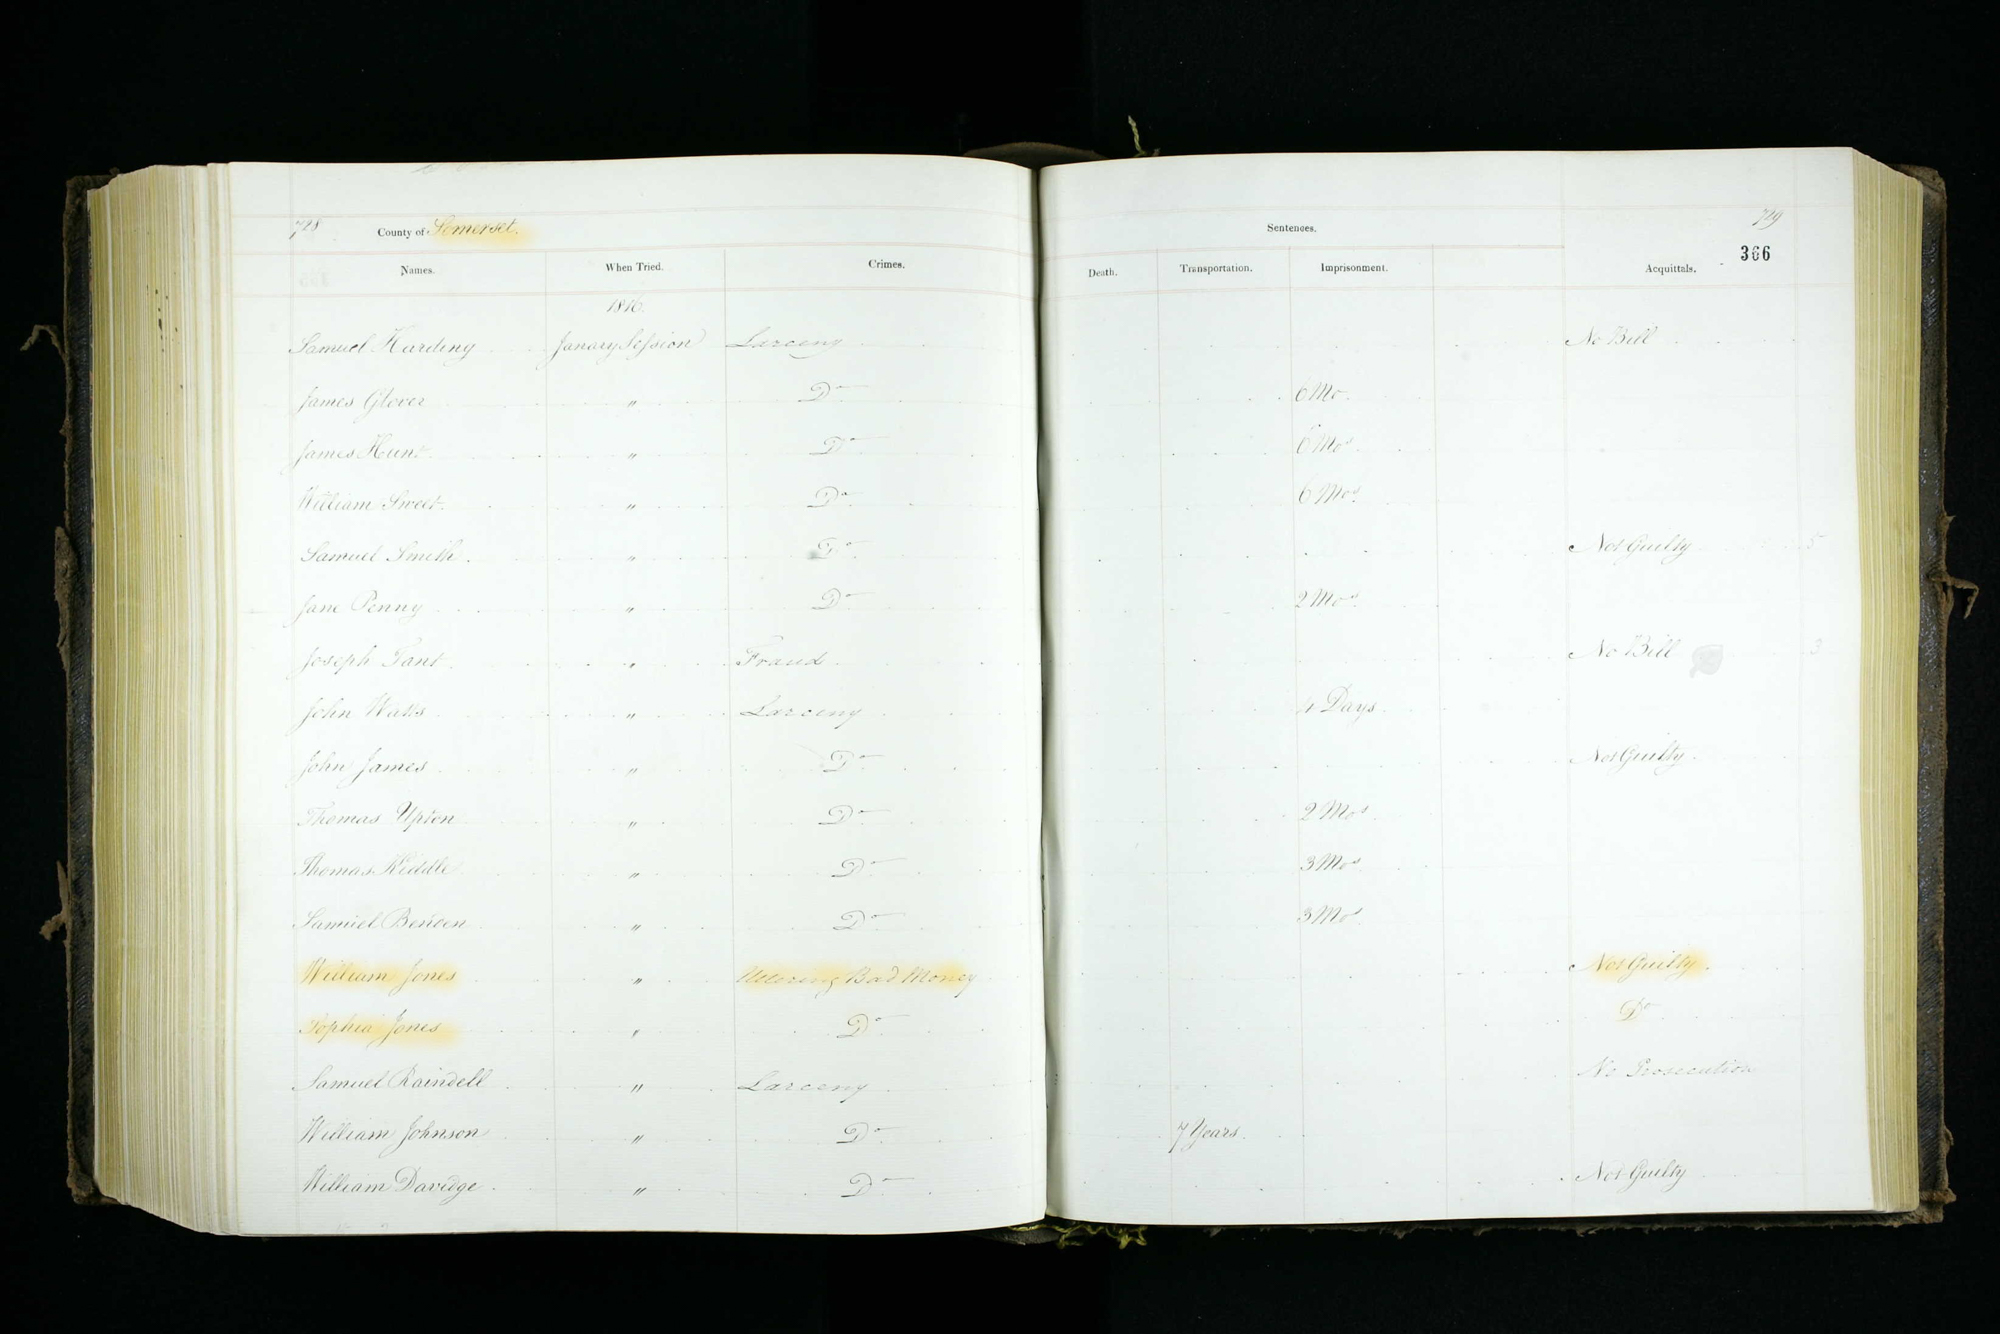 728 County of Somerset.
Sentences. 729
366
Names. When Tried. Crimes. Death. Transportation. Imprisonment. Acquittals.
1816.
Samuel Harding Janary Session Larceny No Bill
James Glover " Do 6 Mo.
James Hunt " Do 6 Mos
William Sweet " Do 6 Mos
Samuel Smith " Do Not Guilty 5
Jane Penny " Do 2 Mos
Joseph Tant " Fraud No Bill 3
John Watts " Larceny 4 Days
John James " Do Not Guilty
Thomas Upton " Do 2 Mos
Thomas Kiddle " Do 3 Mos
Samuel " Do 3 Mos
William Jones " Uttering Bad Money Not Guilty
Sophia Jones " Do Do
Samuel Raindell " Larceny No Prosecution
William Johnson " Do 7 Years
William Davidge " Do Not Guilty